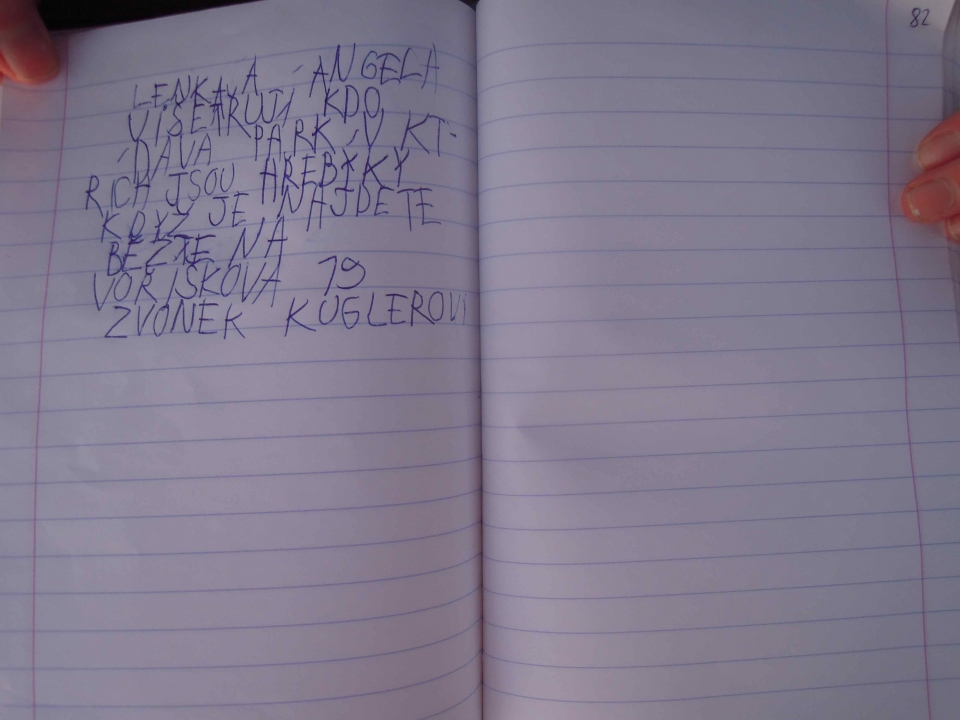 LENKA A ANGELA
VIŠETŘUJÍ KDO
DÁVÁ PÁRK,Y V KT-
RÍCH JSOU HŘEBÝKY
KDYŽ JE NAJDETE
BĚŽTE NA
VOŘÍŠKOVA 19
ZVONEK KUGLEROVI
82